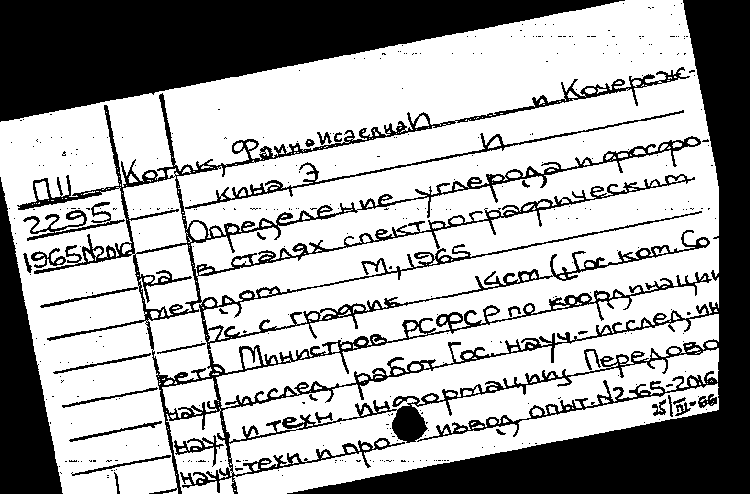 Котик, Фаина Исаевна и Кочереж-
П11
кина, Э И
2295
Определение углерода и фосфо-
1965/2016
ра в сталях спектрографическим
методом. М., 1965
7с. с график. 14см. (Гос. ком. Со-
вета Министров РСФСР по координации
науч.-исслед. работ. Гос. науч.-исслед. ин
науч. и техн. информации; Передово
науч.-техн. и производ. опыт. №2-65-2016
25/III-66